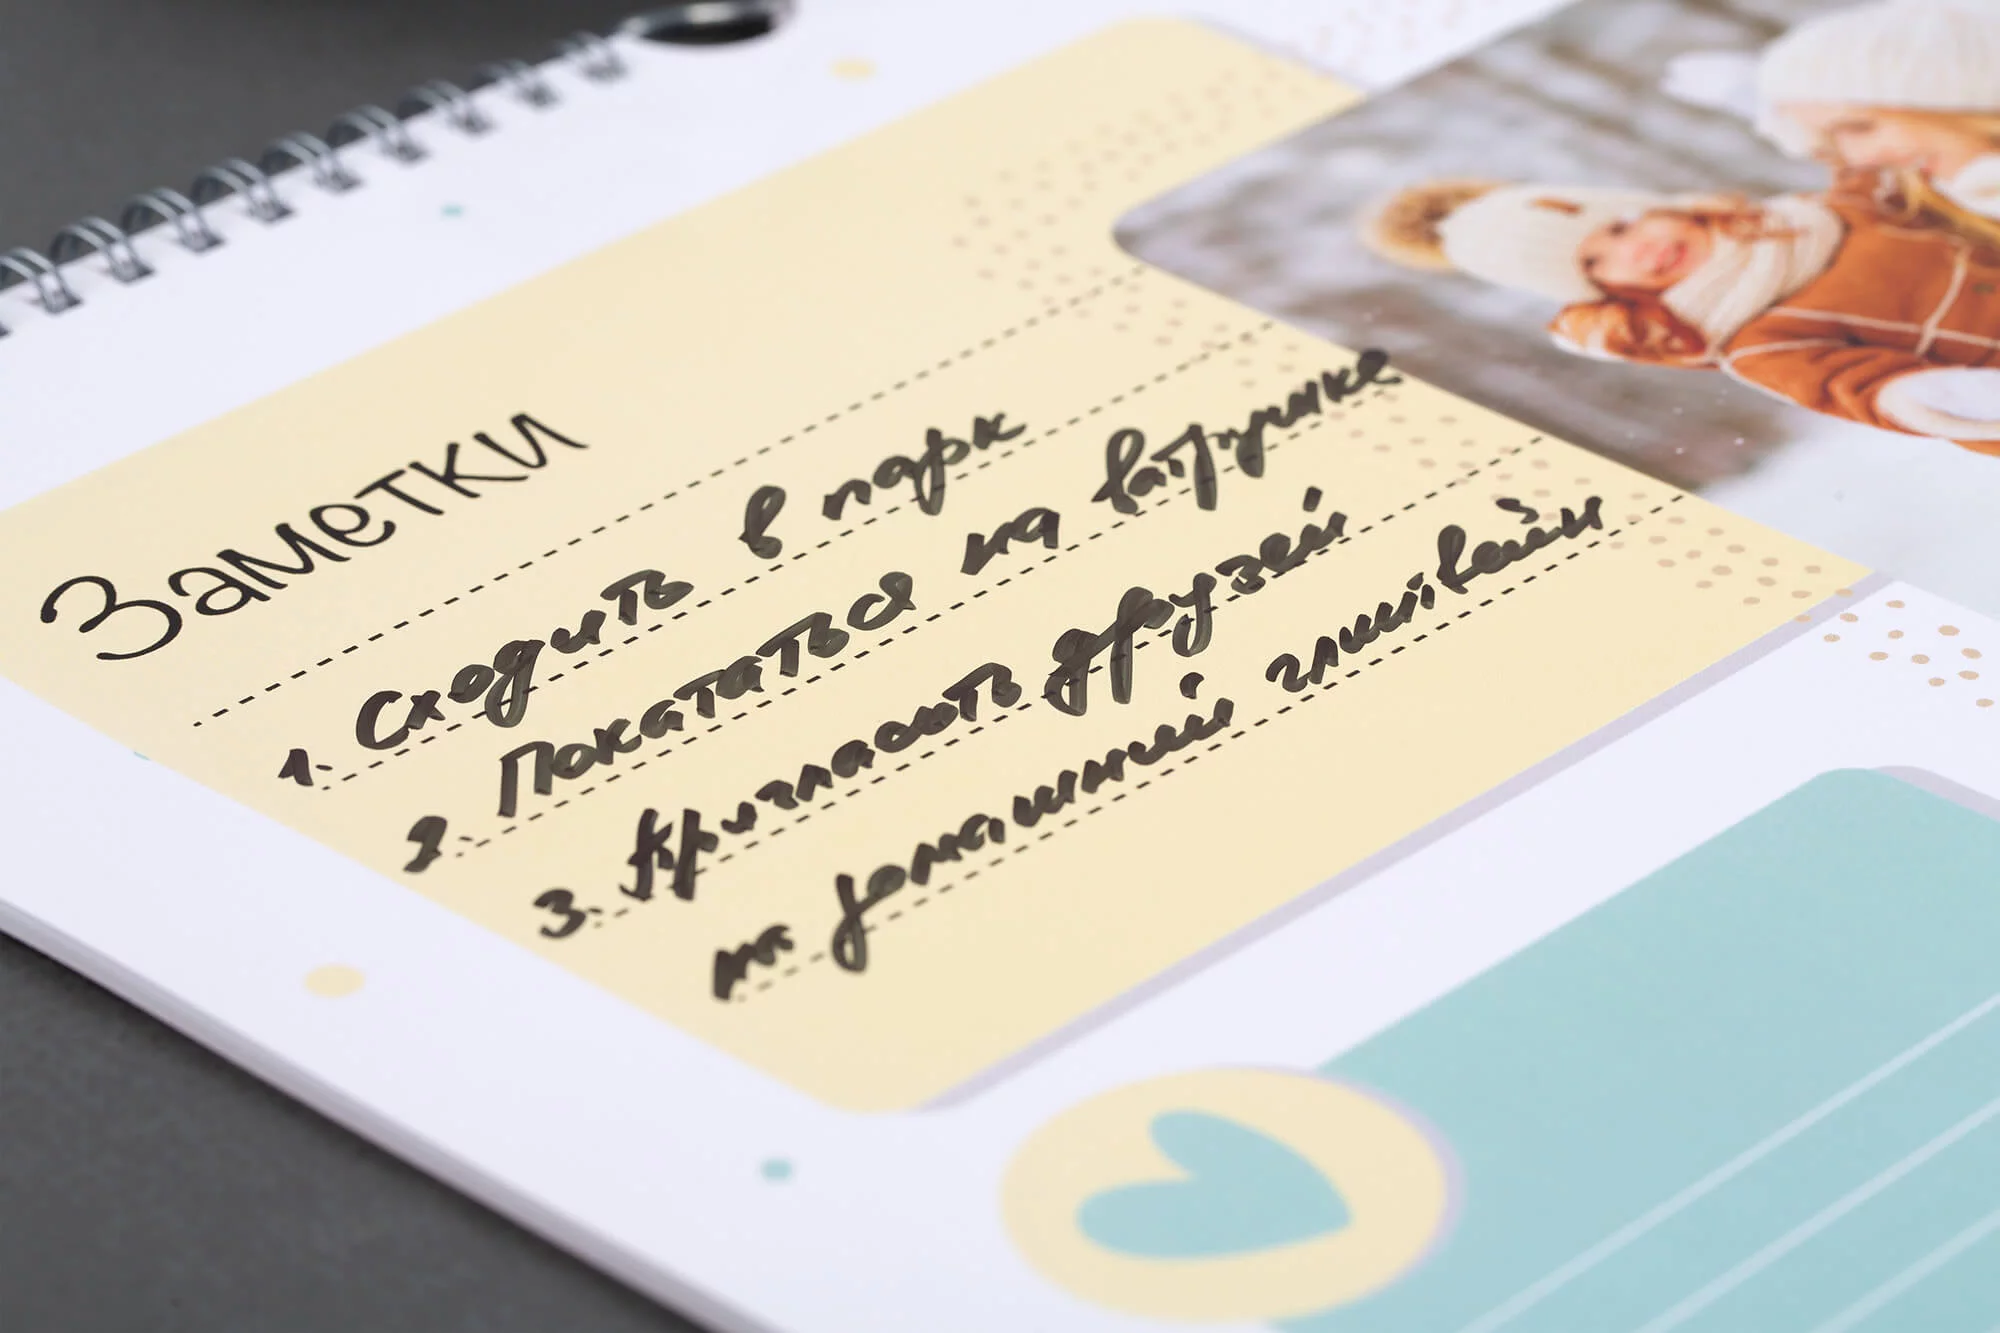 Заметки
1. Сходить в парк
2. Покататься на ватрушке
3. Пригласить друзей
на домашний глинтвейн